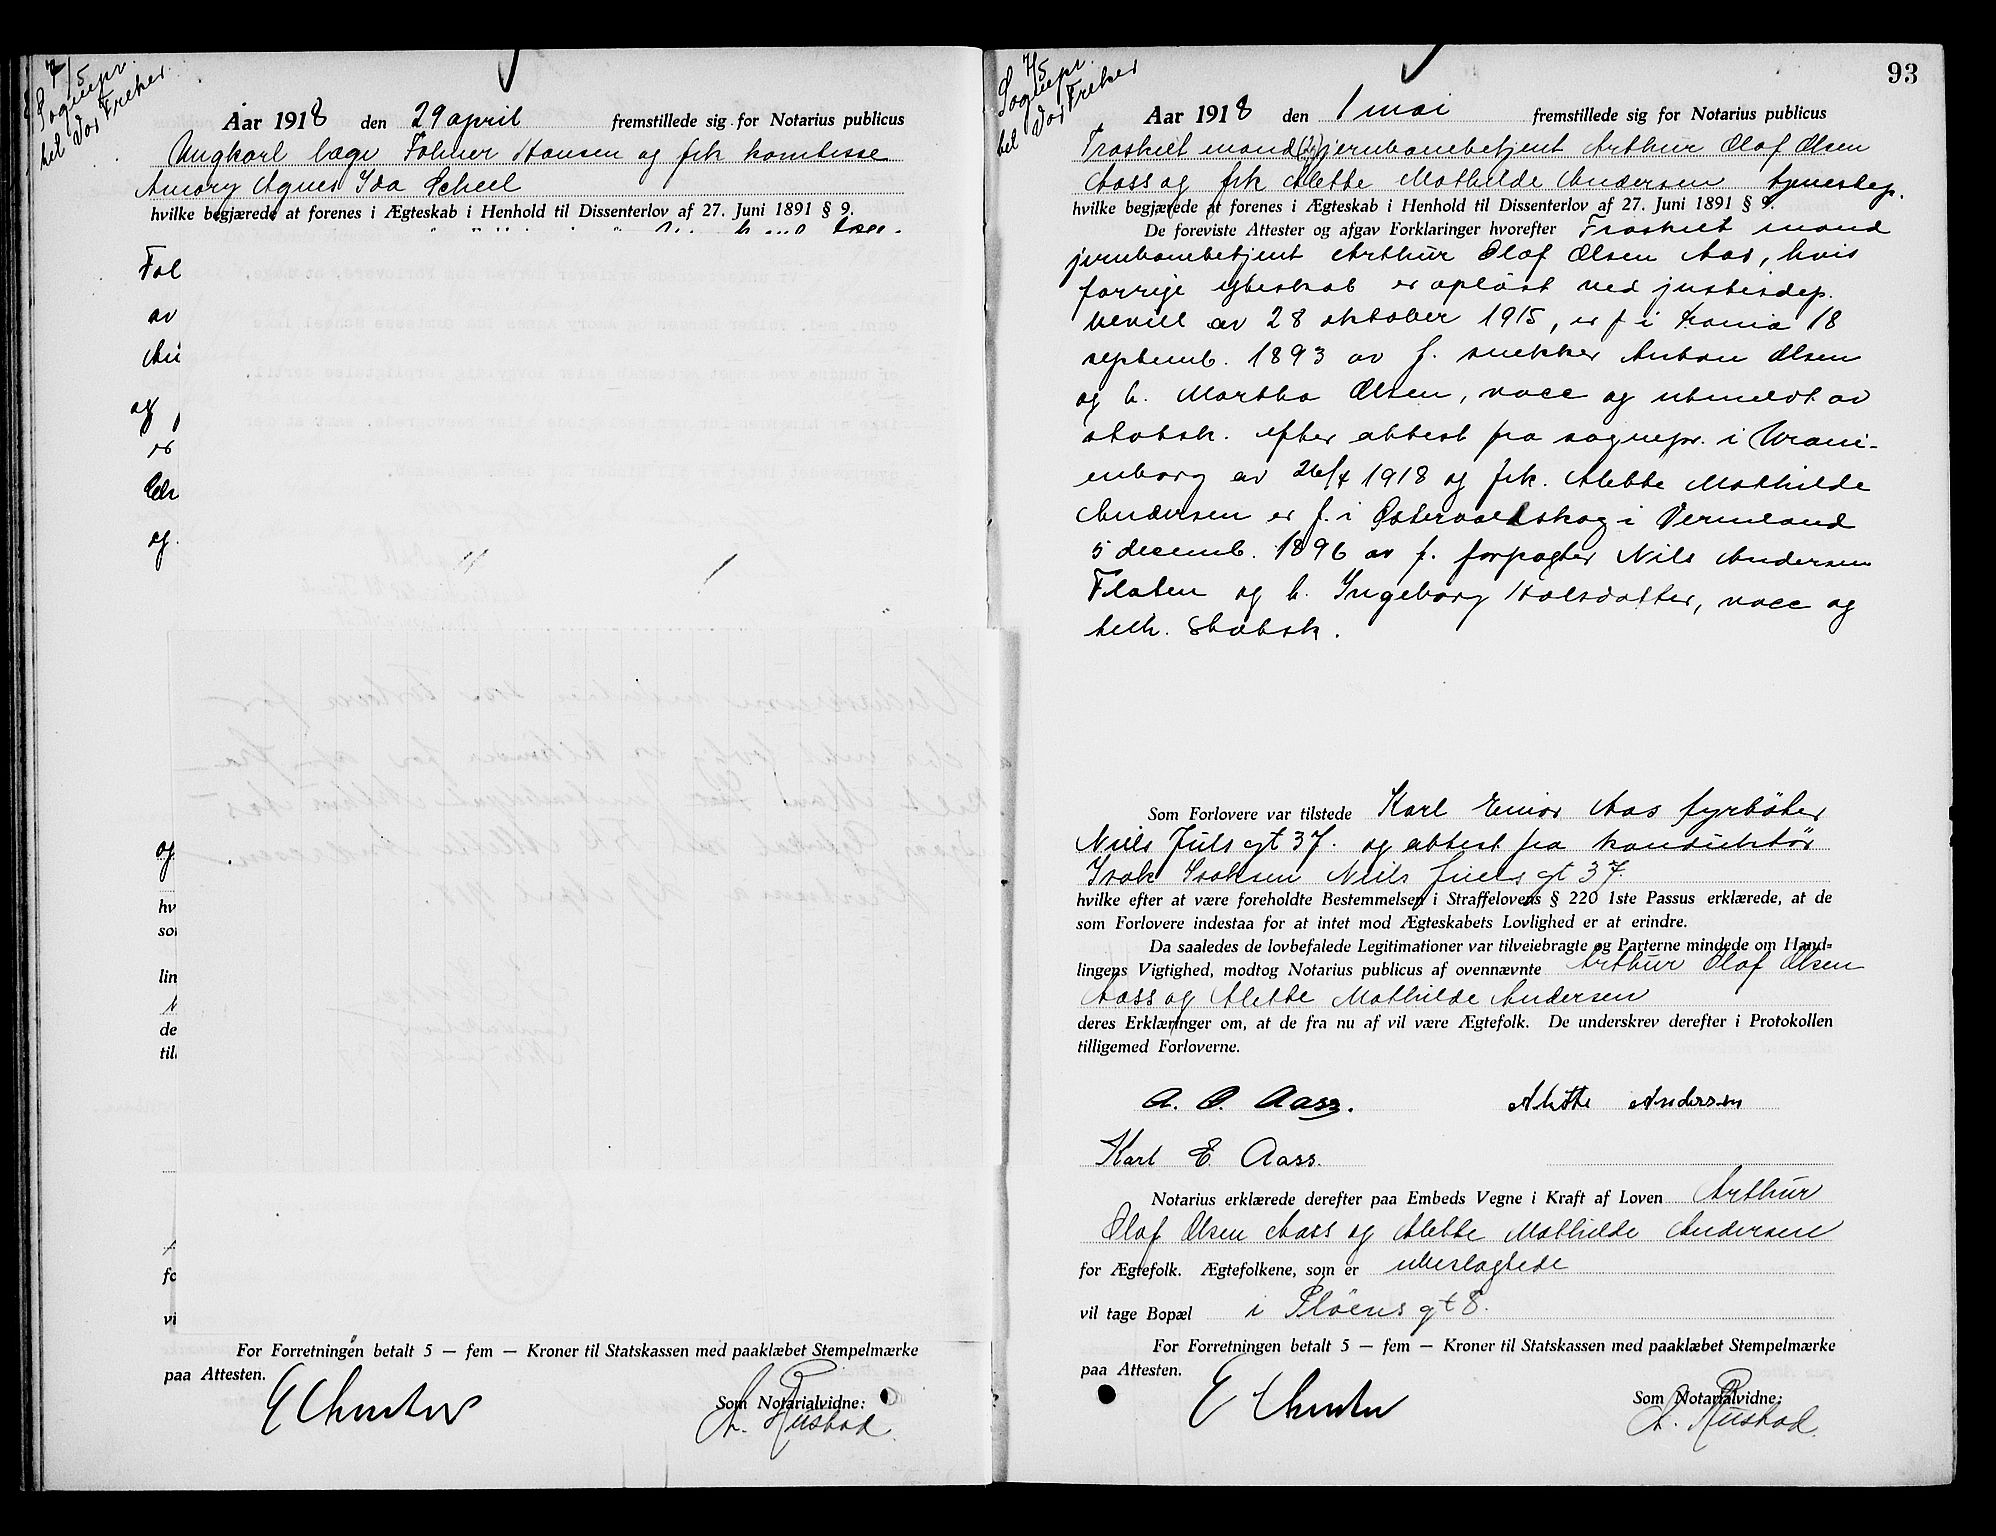 7/5
Sognepr.
til Vor Frelser
Aar 1918 den 29 april fremstillede sig for Notarius publicus
Ungkarl læge Folmer Hansen og frk komtesse
Amory Agnes Ida Scheel
hvilke begjærede at forenes i Ægteskab i Henhold til Dissenterlov af 27. Juni 1891 § 9.
Fol
av
og
er
og.
og
hv
so
lin
de
til
fo
vi
For Forretningen betalt 5 — fem — Kroner til Statskassen med paaklæbet Stempelmærke
paa Attesten.
Som Notarialvidne:
A. Rustad
93
7/5
Sognepr.
til Vor Frelser
Aar 1918 den 1 mai fremstillede sig for Notarius publicus
Fraskilt mand (2) jernbanebetjent Arthur Olaf Olsen
Aass og frk Alette Mathilde Andersen tjenestep.
hvilke begjærede at forenes i Ægteskab i Henhold til Dissenterlov af 27. Juni 1891 § 9.
De foreviste Attester og afgav Forklaringer hvorefter Fraskilt mand
jernbanebetjent Arthur Olaf Olsen Aas, hvis
forrige egteskab er opløst ved justisdep.
bevill av 28 oktober 1915, er f i Kr.ania 18
septemb. 1893 av f. snekker Anton Olsen
og h. Martha Olsen, vacc og utmeldt av
statsk. efter attest fra sognepr. i Urani-
enborg av 26/4 1918 og frk. Alette Mathilde
Andersen er f. i Østervalskog i Vermland
5 decemb. 1896 av f. forpagter Nils Andersen
Flaten og h. Ingeborg Halsdatter, vacc og
tilh. Statsk.
Som Forlovere var tilstede Karl Einar Aas fyrbøter
Niels Juls gt 37. og attest fra konduktør
Isak Isaksen Niels Juels gt 37.
hvilke efter at være foreholdte Bestemmelsen i Straffelovens § 220 1ste Passus erklærede, at de
som Forlovere indestaa for at intet mod Ægteskabets Lovlighed er at erindre.
Da saaledes de lovbefalede Legitimationer var tilveiebragte og Parterne mindede om Hand-
lingens Vigtighed, modtog Notarius publicus af ovennævnte Arthur Olaf Olsen
Aass og Alette Mathilde Andersen
deres Erklæringer om, at de fra nu af vil være Ægtefolk. De underskrev derefter i Protokollen
tilligemed Forloverne.
A. O. Aass. Alette Andersen
Karl E. Aass.
Notarius erklærede derefter paa Embeds Vegne i Kraft af Loven Arthur
Olaf Olsen Aass og Alette Mathilde Andersen
for Ægtefolk. Ægtefolkene, som er ubeslægtede
vil tage Bopæl i Pløens gt 8.
For Forretningen betalt 5 — fem — Kroner til Statskassen med paaklæbet Stempelmærke
paa Attesten.
Som Notarialvidne:
A. Rustad